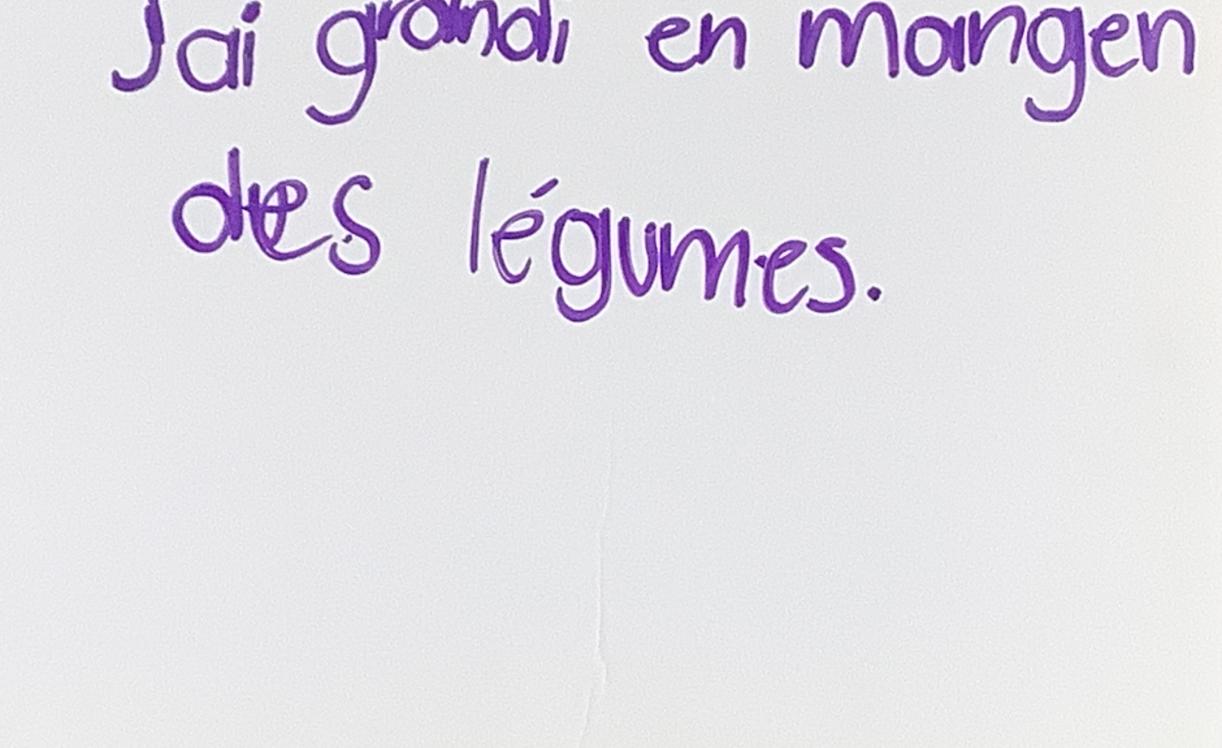 Jai grandi en mangen
des légumes.